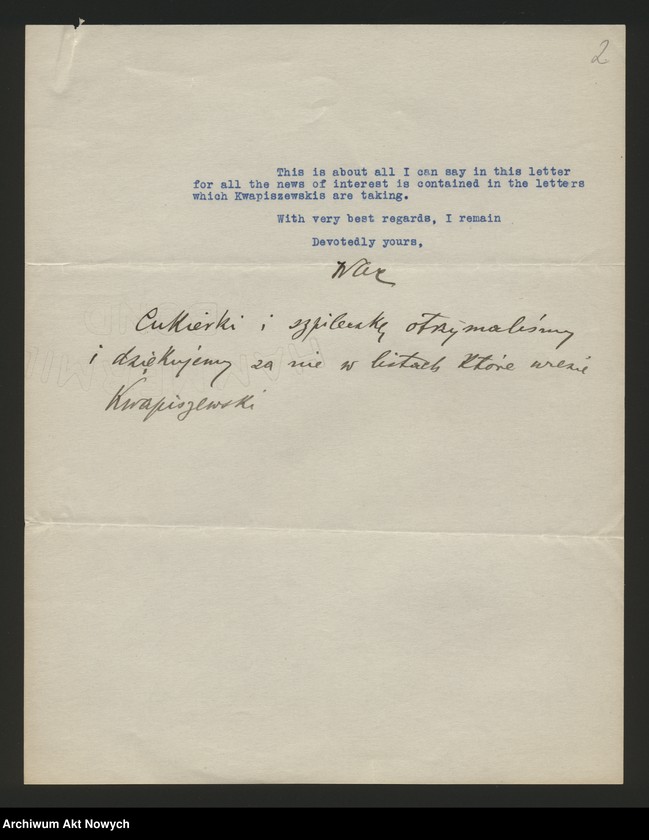 2
This is about all I can say in this letter
for all the news of interest is contained in the letters
which Kwapiszewskis are taking.
With very best regards, I remain
Devotedly yours,
Cukierki i szpileczkę otrzymaliśmy
i dziękujemy za nie w listach które wiezie
Kwapiszewski
Archiwum Akt Nowych